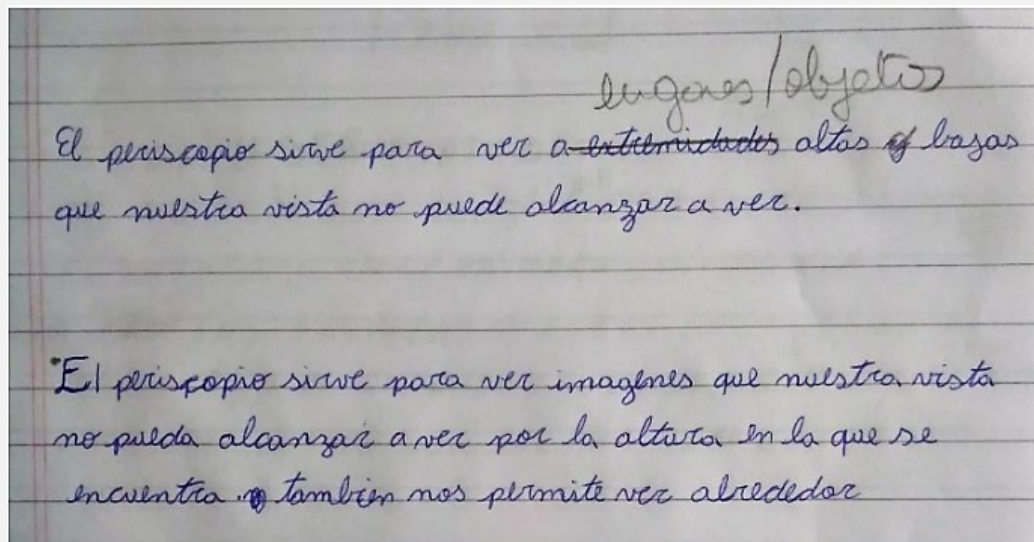 lugares/objetos
El periscopio sirve para ver a extremidades altas y bajas
que nuestra vista no puede alcanzar a ver.
El periscopio sirve para ver imagenes que nuestra vista
no pueda alcanzar a ver por la altura en la que se
encuentra. también nos permite ver alrededor